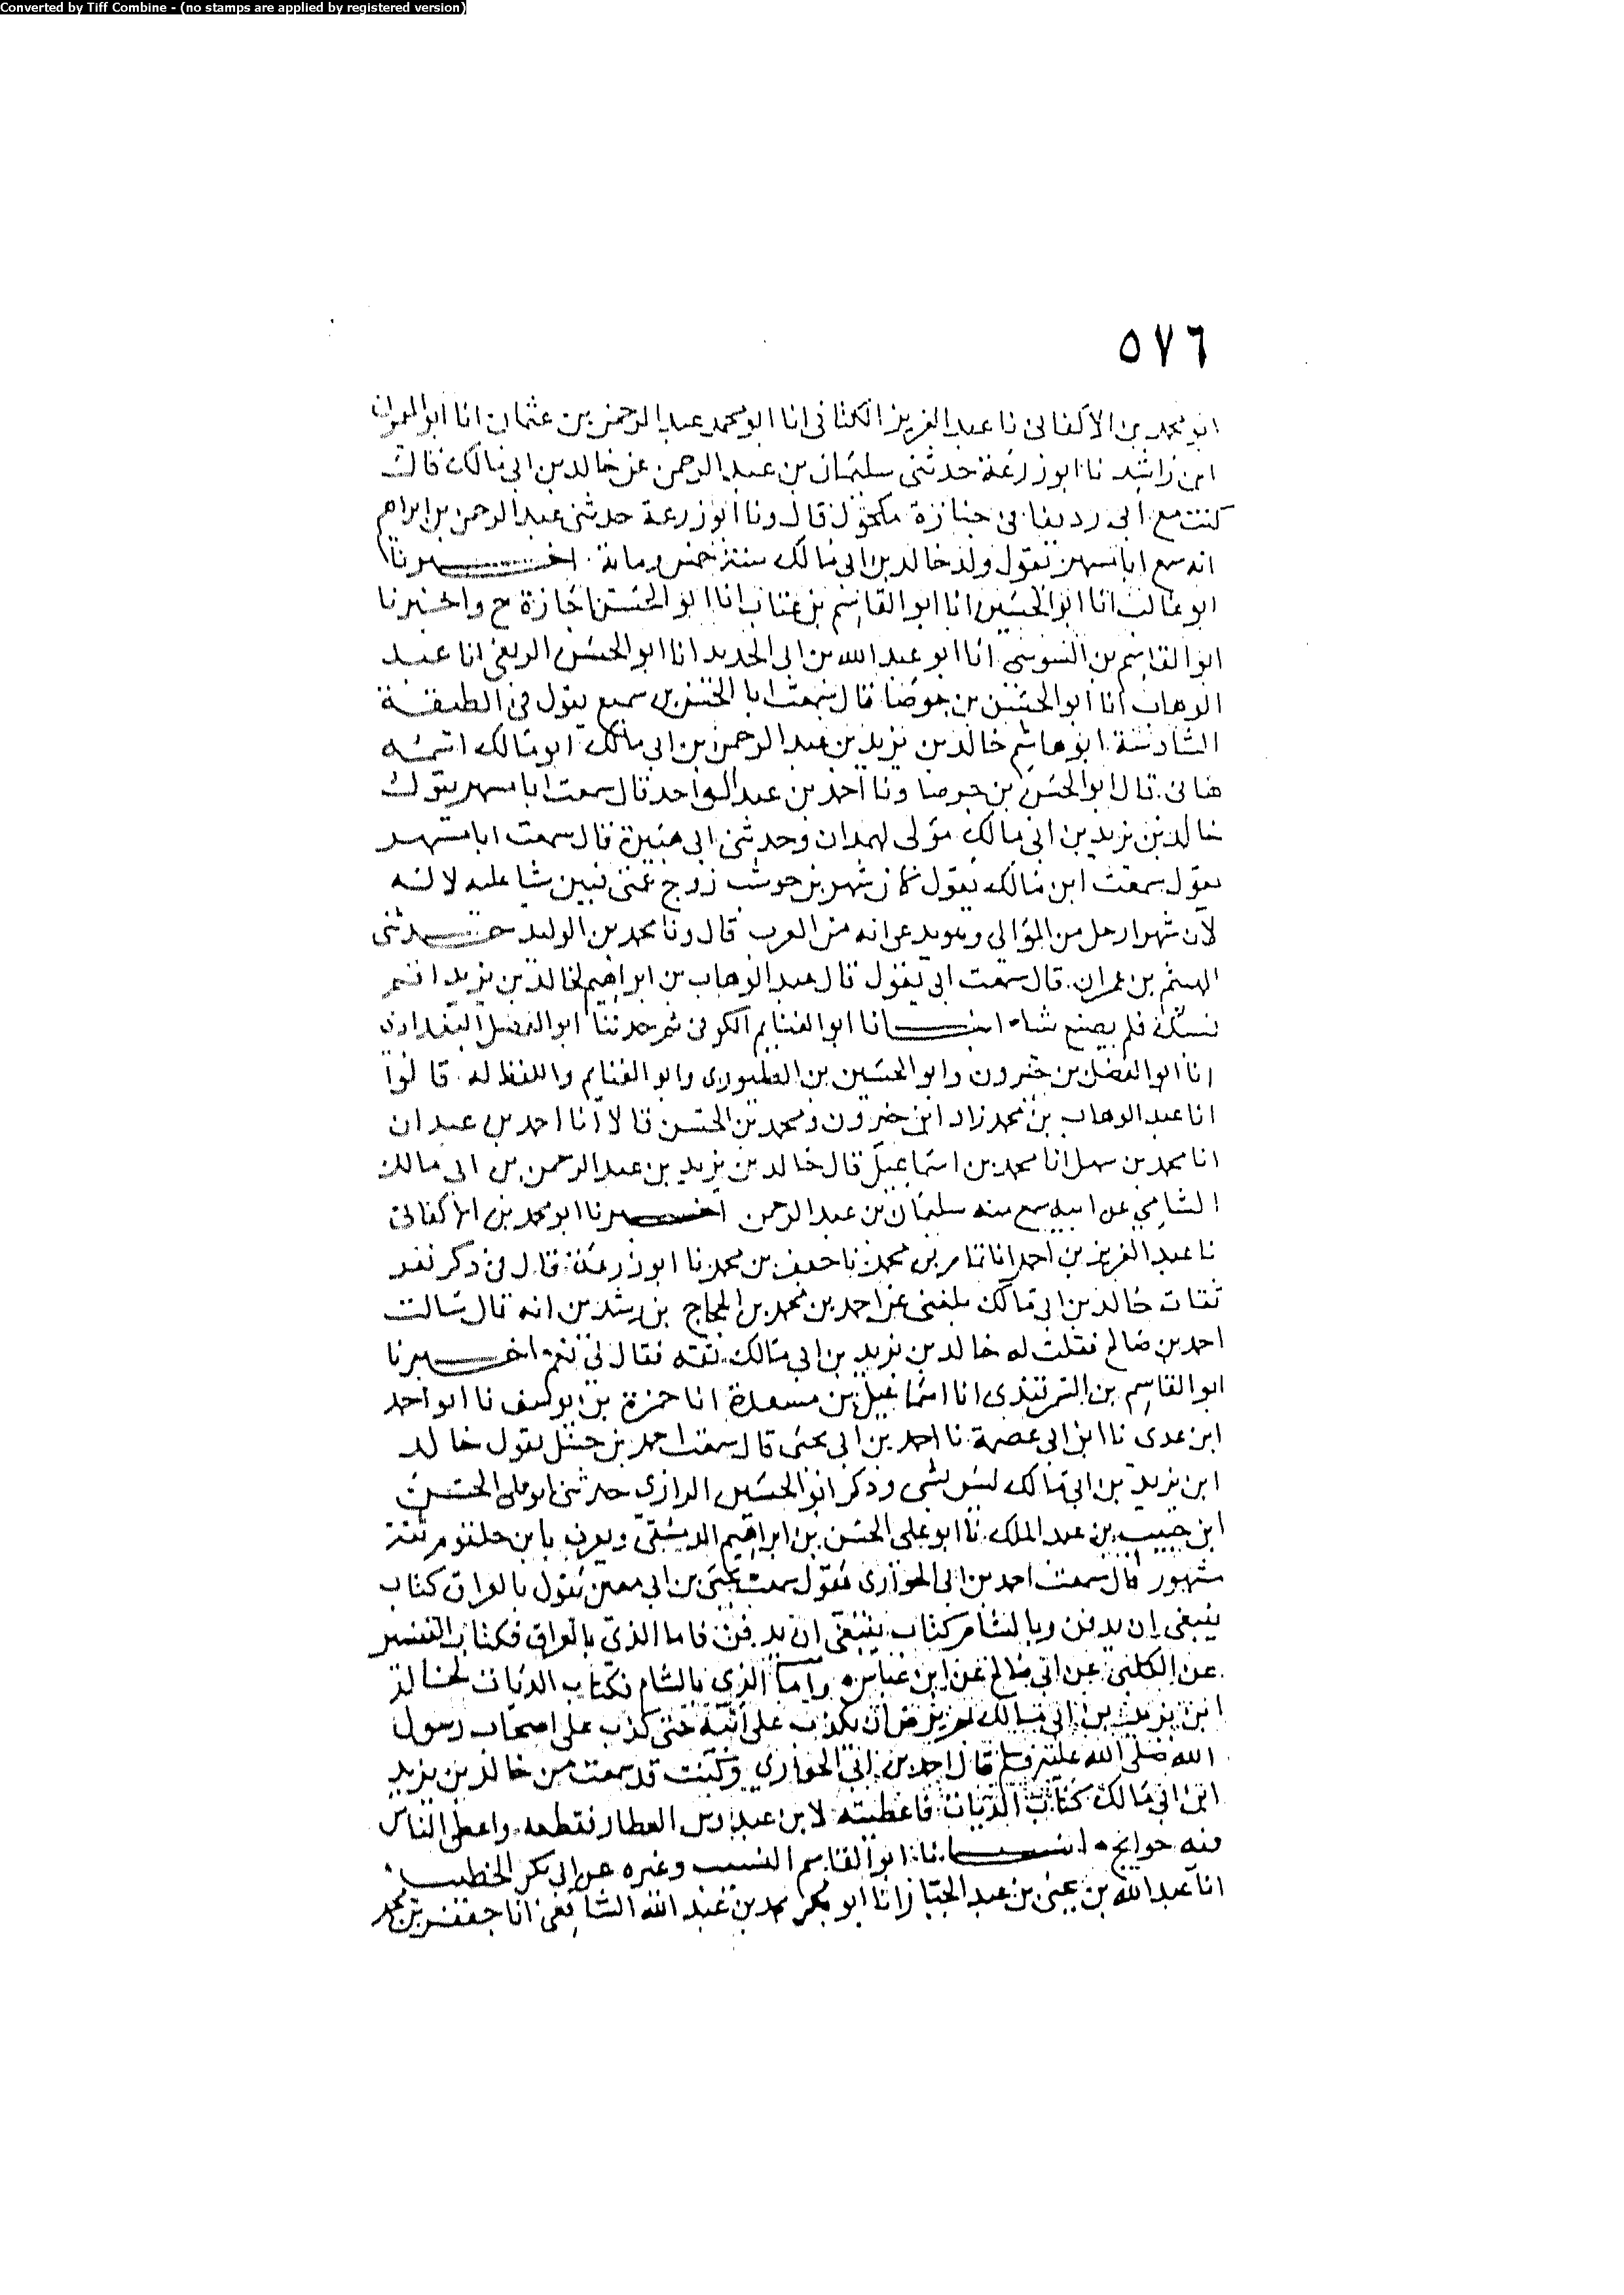 Converted by Tiff Combine - (no stamps are applied by registered version)
٥٧٦
ابو محمد بن الاكفانى نا عبد العزيز الكتانى انا ابو محمد عبد الرحمن بن عثمان انا ابو الميمون
ابن راشد نا ابو زرعة حدثنى سليمان بن عبد الرحمن عن خالد بن ابى مالك قال
كنت مع ابى رديفا فى جنازة مكحول قال ونا ابو زرعة حدثنى عبد الرحمن بن ابراهيم
انه سمع ابا مسهر يقول ولد خالد بن ابى مالك سنة خمس ومائة اخبرنا
ابو غالب انا ابو الحسين انا ابو القاسم بن عتاب انا ابو الحسن اجازة ح واخبرنا
ابو القاسم بن السوسى انا ابو عبد الله بن ابى الحديد انا ابو الحسن الربعى انا عبد
الوهاب انا ابو الحسن بن جوصا قال سمعت ابا الحسن بن سميع يقول فى الطبقة
السادسة ابو هاشم خالد بن يزيد بن عبد الرحمن بن ابى مالك ابو مالك اسمه
هانى قال ابو الحسن بن جوصا ونا احمد بن عبد الواحد قال سمعت ابا مسهر يقول
خالد بن يزيد بن ابى مالك مولى لهمدان وحدثنى ابى هبيرة قال سمعت ابا مسهر
يقول سمعت ابن مالك يقول كان شهر بن حوشب زوج عمتى شا عليه لانه
لان شهرا رجل من الموالى ويزيد عرانه من العرب قال ونا محمد بن الوليد حدثنى
الهيثم بن عمران قال سمعت ابى يقول قال عبد الوهاب بن ابراهيم لخالد بن يزيد
فلم يصنع شاه انبانا ابو الغنايم الكوفى ثم حدثنا ابو الفضل البغدادى
انا ابو الفضل بن خيرون وابو الحسين بن الطيورى وابو الغنايم واللفظ له قالوا
انا عبد الوهاب بن محمد زاد ابن خيرون ومحمد بن الحسن قالا انا احمد بن عبدان
انا محمد بن سهل انا محمد بن اسماعيل قال خالد بن يزيد بن عبد الرحمن بن ابى مالك
الشامى عن ابيه سمع منه سليمان بن عبد الرحمن اخبرنا ابو محمد بن الاكفانى
نا عبد العزيز بن احمد انا تمام بن محمد نا جعفر بن محمد نا ابو زرعة قال فى ذكر نفر
ثقات خالد بن ابى مالك بلغنى عن احمد بن محمد بن الحجاج بن رشدين انه قال سالت
احمد بن صالح فقلت له خالد بن يزيد بن ابى مالك ثقة فقال لى نعم اخبرنا
ابو القاسم بن السمرقندى انا اسماعيل بن مسعدة انا حمزة بن يوسف نا ابو احمد
ابن عدى نا ابن ابى عصمة نا احمد بن ابى يحيى قال سمعت احمد بن حنبل يقول خالد
ابن يزيد بن ابى مالك ليس بشى وذكر ابو الحسين الرازى حدثنى ابو على الحسن
ابن حبيب بن عبد الملك نا ابو على الحسن بن ابراهيم الدمشقى ويعرف بابن حلقوم ثقة
مشهور قال سمعت احمد بن ابى الحوارى يقول سمعت يحيى بن ابى معين يقول بالعراق كتاب
ينبغى ان يدفن وبالشام كتاب ينبغى ان يدفن فاما الذى بالعراق فكتاب التفسير
عن الكلبى عن ابى صالح عن ابن عباس واما الذى بالشام فكتاب الديات لخالد
ابن يزيد بن ابى مالك لم يرض ان يكذب على ابيه حتى كذب على اصحاب رسول
الله صلى الله عليه وسلم قال احمد بن ابى الحوارى وكنت قد سمعت من خالد بن يزيد
ابن ابى مالك كتاب الديات فاعطيته لابن عبدوس العطار فقطعه واعطى الناس
فيه حوايج انبانا ابو القاسم النسيب وغيره عن ابى بكر الخطيب
انا عبد الله بن يحيى بن عبد الجبار انا ابو بكر محمد بن عبد الله الشافعى انا جعفر بن محمد